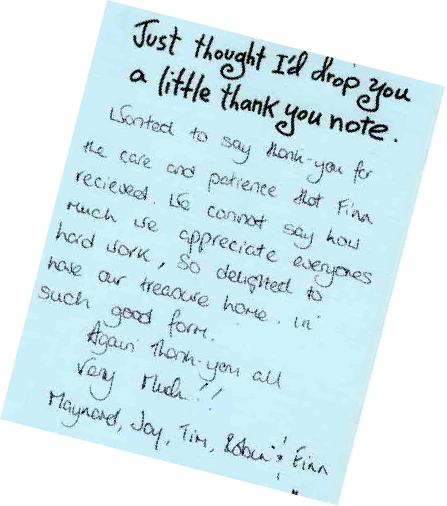 Just thought I'd drop you
a little thank you note.
Wanted to say thank-you for
the care and patience that Finn
recieved. We cannot say how
much we appreciate everyones
hard work, so delighted to
have our treasure home. in
such good form.
Again thank-you all
very much!!
Maynard, Joy, Tim, Robin & Finn